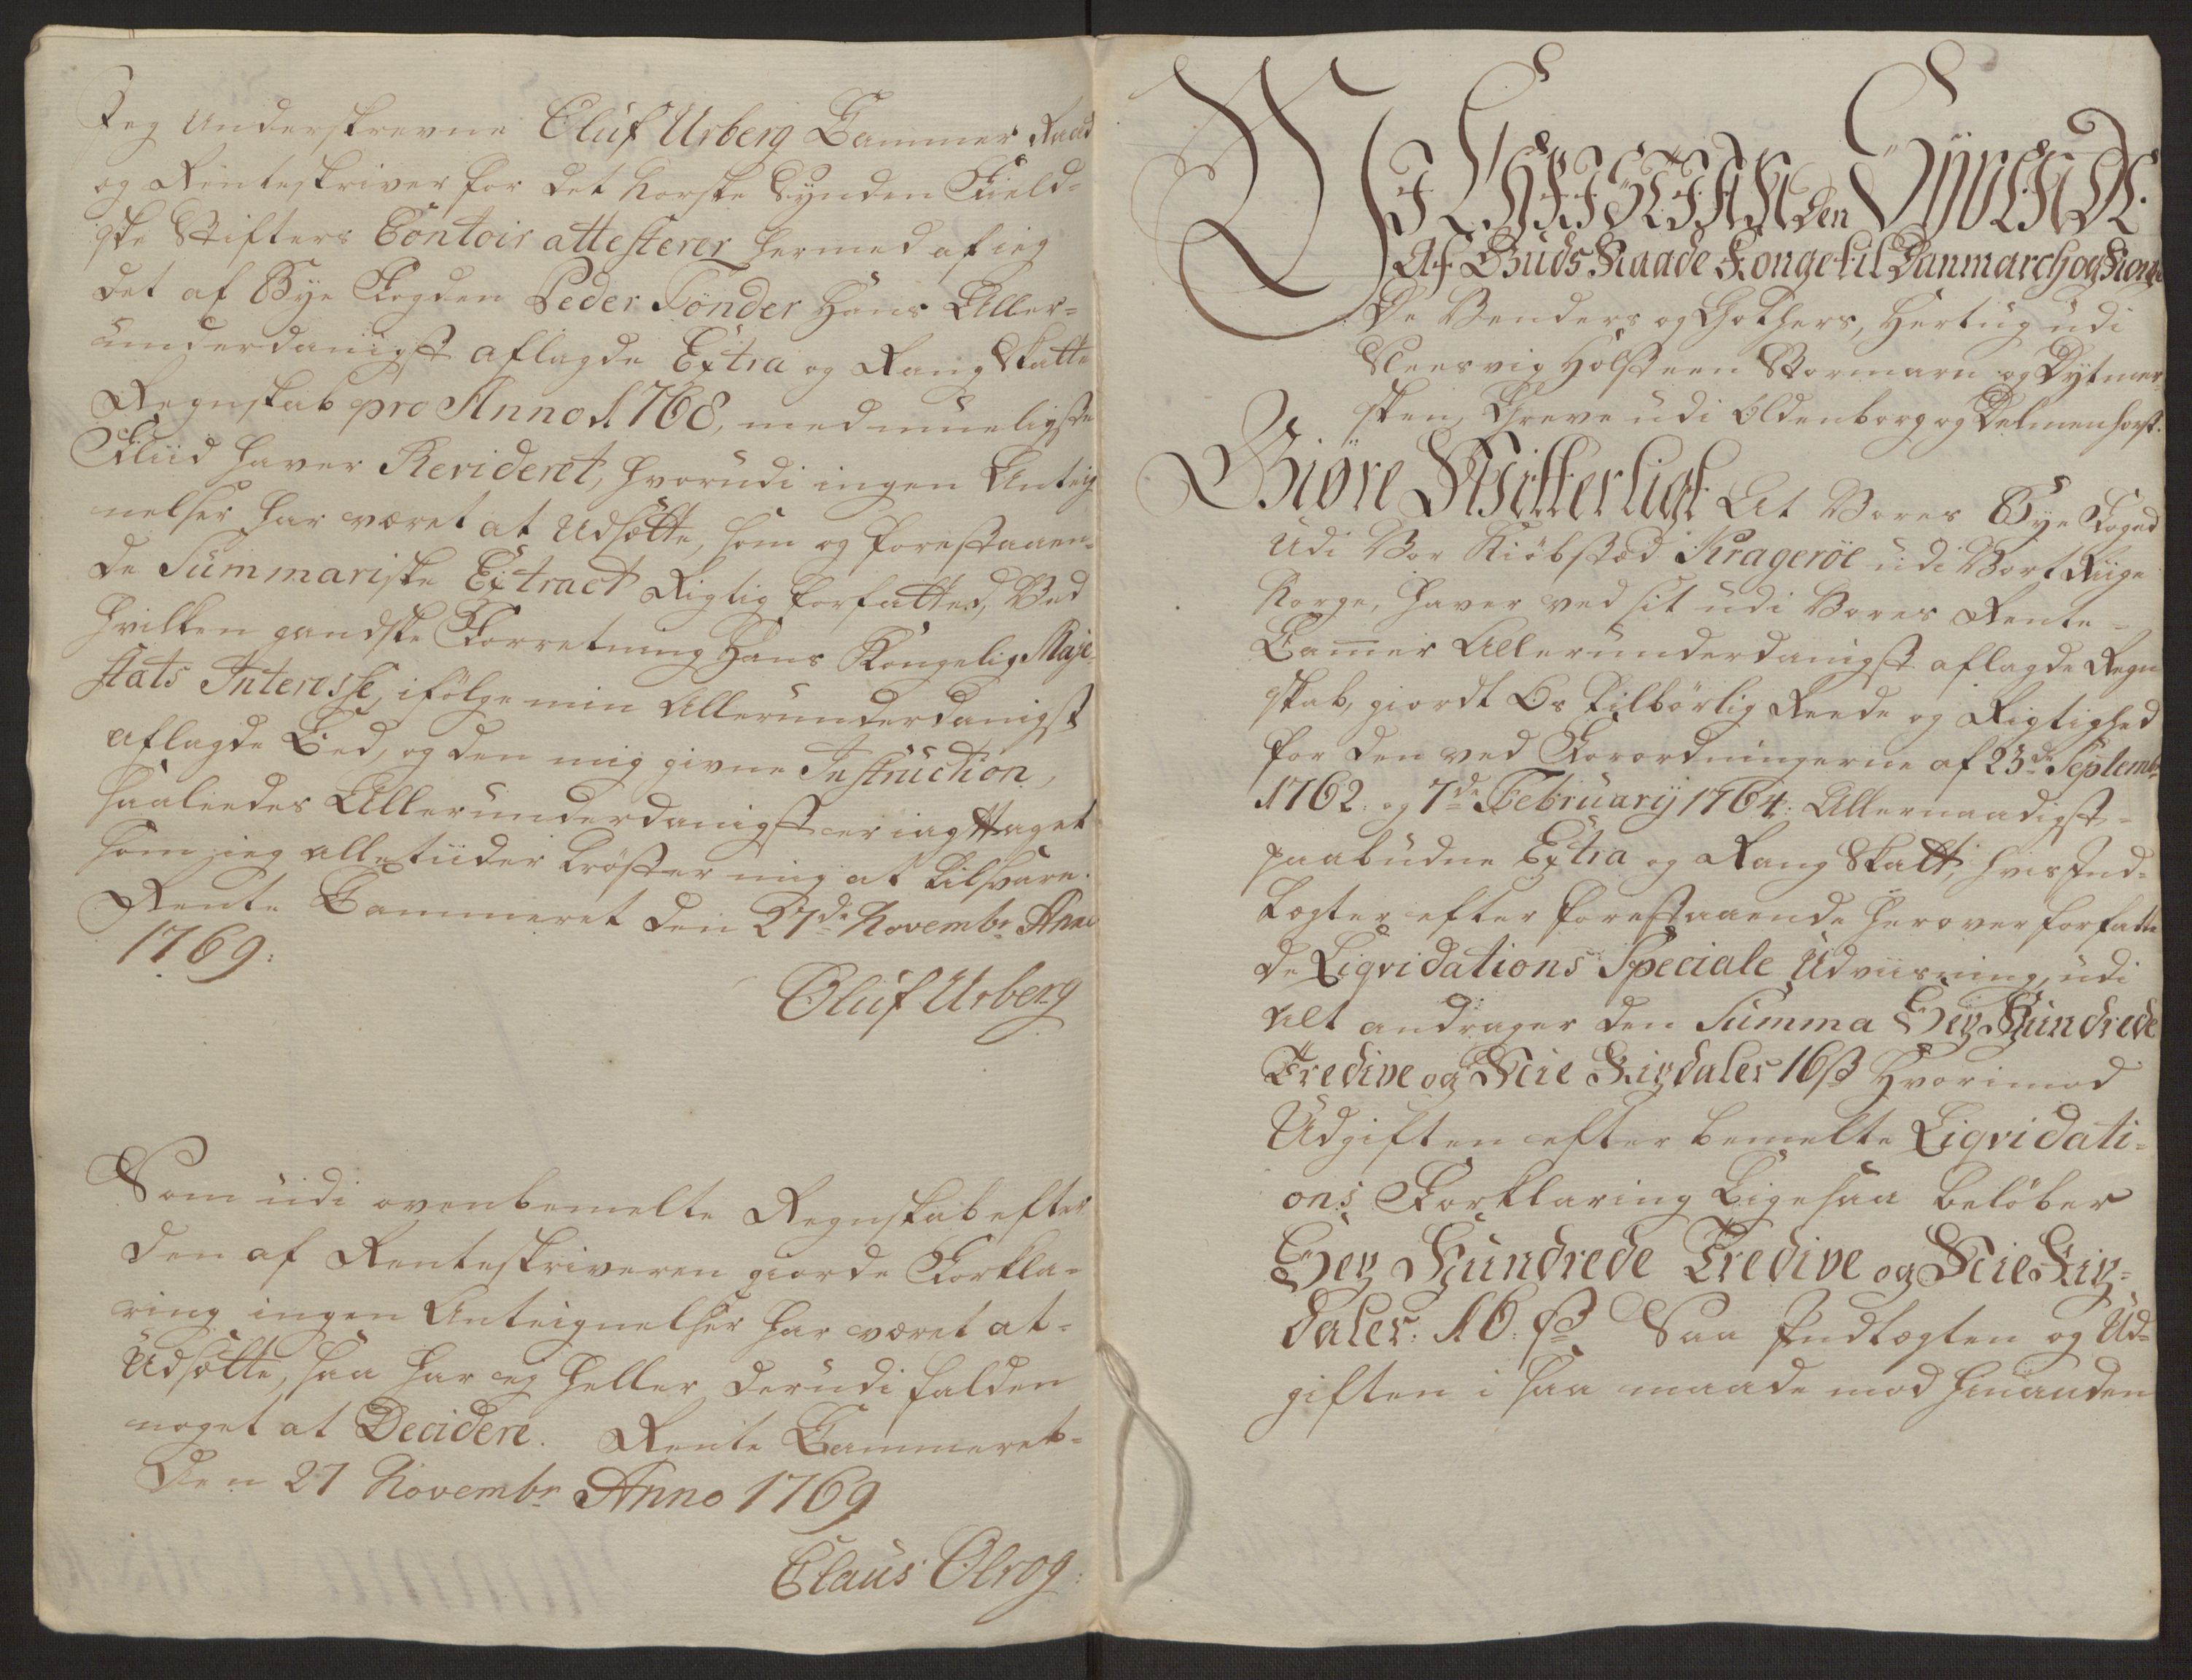 Jeg Underskrevne Oluf Urberg Cammer Raad
og Renteskriver for det Norske Synden Field-
ske Stifters Contoir attesterer hermed at ieg
det af Bye Fogden Peder Tönder Hans Aller-
underdanigst aflagde Extra og Rang Skatte
Regnskab pro Anno 1768, med mueligste
Fliid haver Revideret, hvorudi ingen Anteig
nelser har været at Udsætte, som og forestaaen-
de Summariske Extract Rigtig forfatted, Ved
hvilken gandske Forretning Hans Kongelig Maje-
stats Interesse, ifölge min Allerunderdanigst
aflagde Eed, og den mig givne Instruction,
saaledes Allerunderdanigst er iagttaget
som jeg alletiider tröster mig at tilsvare.
Rente Cammeret den 27de Novembr Anno
1769:
Oluf Urberg
Som udi ovenbemelte Regnskab efter
den af Renteskriveren giorde Forkla-
ring ingen Anteignelser har været at-
Udsætte, saa har ej heller derudi falden
noget at Decidere. Rente Cammeret-
Den 27 Novembr Anno 1769
Claus Olrog:
Wi CHRISTIAN den SYVENDE
Af Guds Naade Konge til Danmarch og Norge
De Venders og Gothers, Hertug udi
Sleesvig Holsteen Stormarn og Dytmer
sken, Greve udi Oldenborg og Delmenhorst.
Giöre Witterligt At Vores Bye Foged
udi Vor Kiöbstæd Krageröe udi Vort Riige
Norge, haver ved sit udi Vores Rente-
Camer Allerunderdanigst aflagde Regn
skab, giordt Os tilbörlig Reede og Rigtighed
for den ved Forordningerne af 23de Septembr
1762. og 7de Februarij 1764: Allernaadigst-
paabudne Extra og Rang Skatt, hvis Ind-
tægter efter forestaaende herover forfatte
de Liqvidations Speciale Udviisning, udi
alt andrager den Summa Sex Hundrede
Tredive og Nie Rixdaler 16 ß Hvorimod
Udgiften efter bemelte Liqvidati-
ons Forklaring Ligesaa belöber
Sex Hundrede Tredive og Nie Rix-
daler. 16. ß Saa Indtægten og Ud-
giften i saa maade mod hinanden